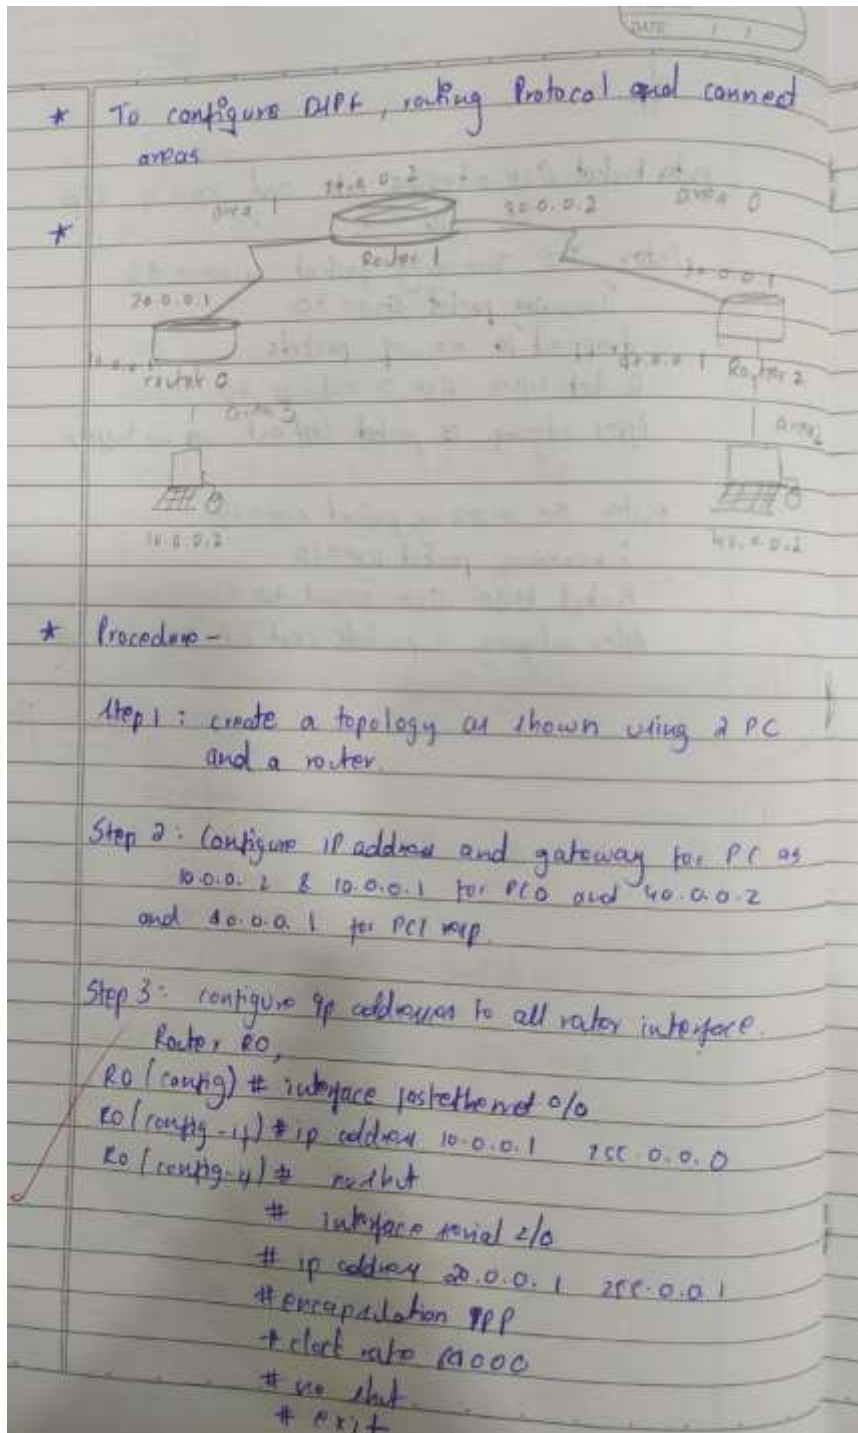 DATE / /
* To configure OSPF, routing Protocal and connect
areas
area 1 20.0.0.2 30.0.0.2 area 0
*
Router 1
30.0.0.1
20.0.0.1
10.0.0.1 router 0 40.0.0.1 Router 2
area 3 area 2
10.0.0.2 40.0.0.2
* Procedure -
Step 1 : create a topology as shown using 2 PC
and a router.
Step 2 : Configure IP address and gateway for PC as
10.0.0.2 & 10.0.0.1 for PC0 and 40.0.0.2
and 40.0.0.1 for PC1 resp.
Step 3 : configure ip addresses to all rator interface.
Router R0,
R0 (config) # interface fastethernet 0/0
R0 (config-if) # ip address 10.0.0.1 255.0.0.0
R0 (config-if) # no shut
# interface serial 2/0
# ip address 20.0.0.1 255.0.0.1
# encapsulation PPP
# clock rate 64000
# no shut
# exit